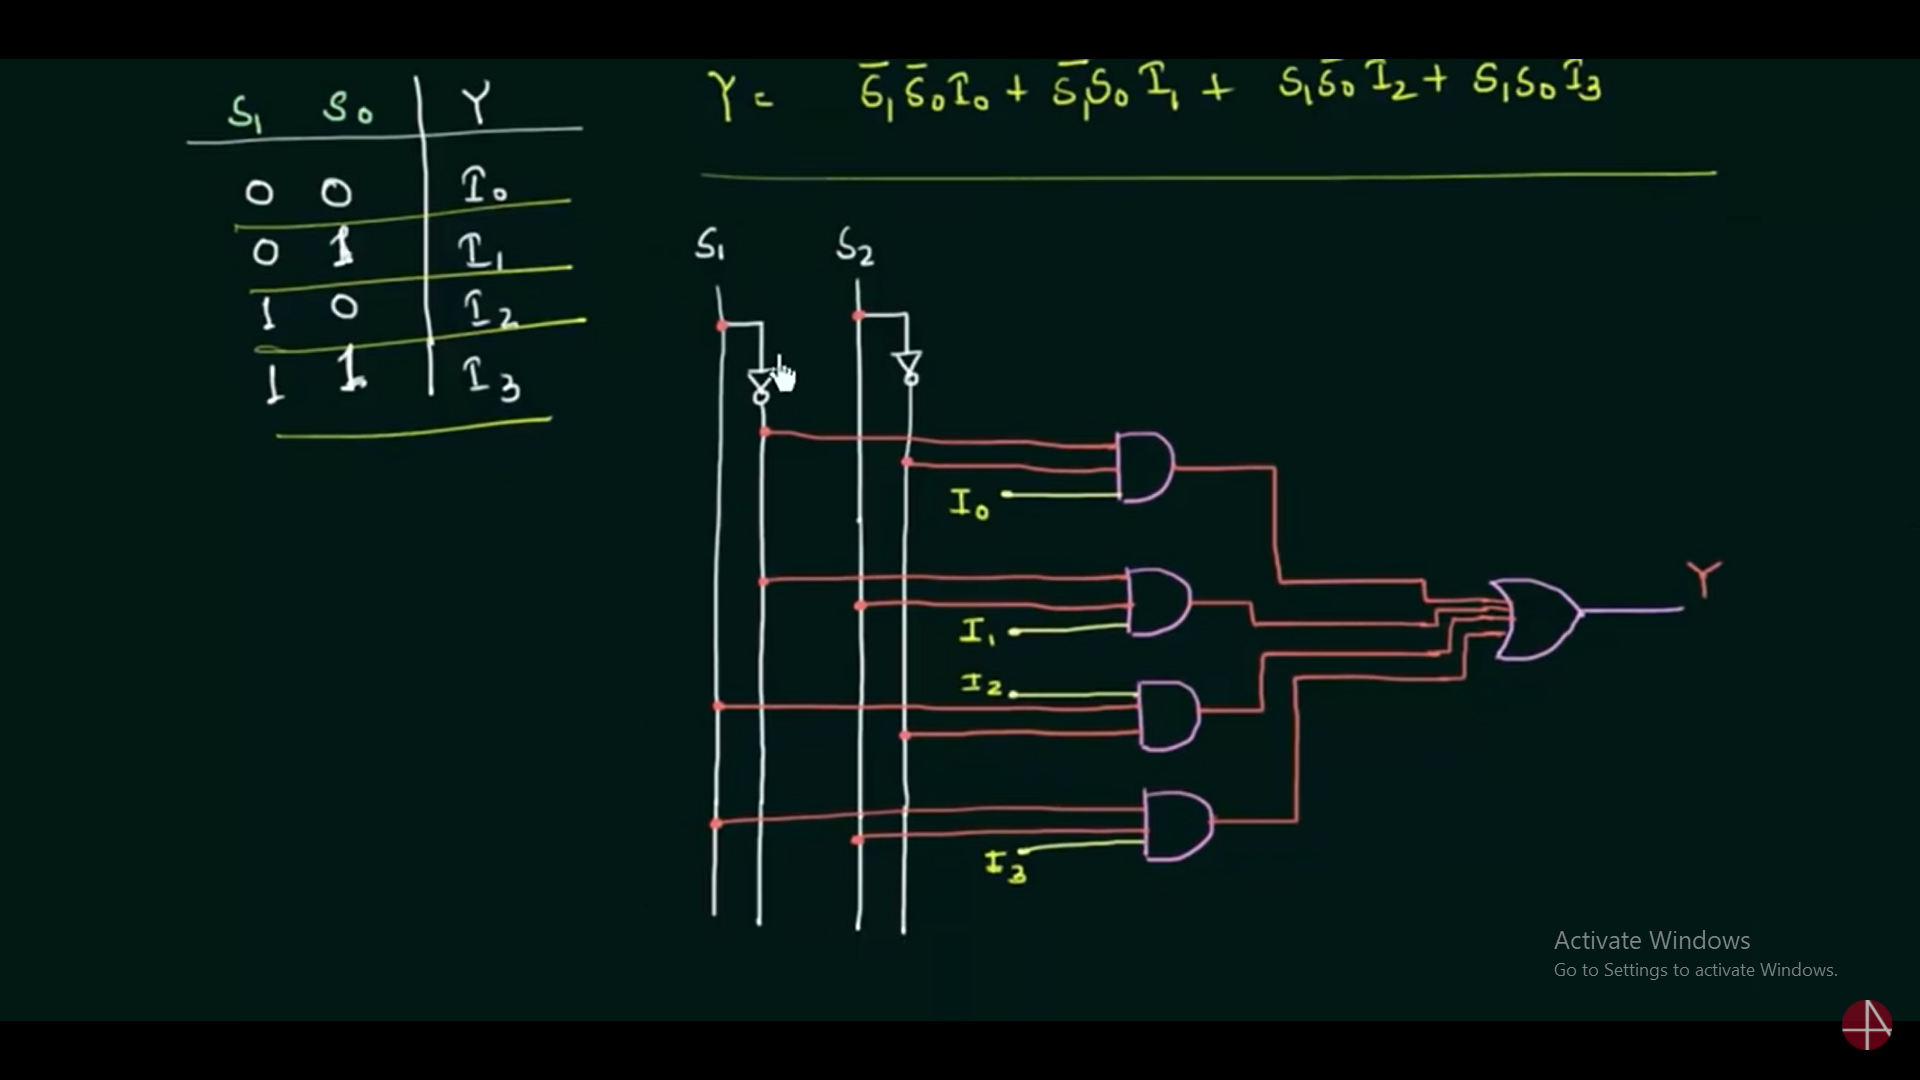 S₁ S₀ Y
0 0 I₀
0 1 I₁
1 0 I₂
1 1 I₃
Y = S̅₁S̅₀I₀ + S̅₁S₀I₁ + S₁S̅₀I₂ + S₁S₀I₃
S₁ S₂
I₀
I₁
I₂
I₃
Y
Activate Windows
Go to Settings to activate Windows.